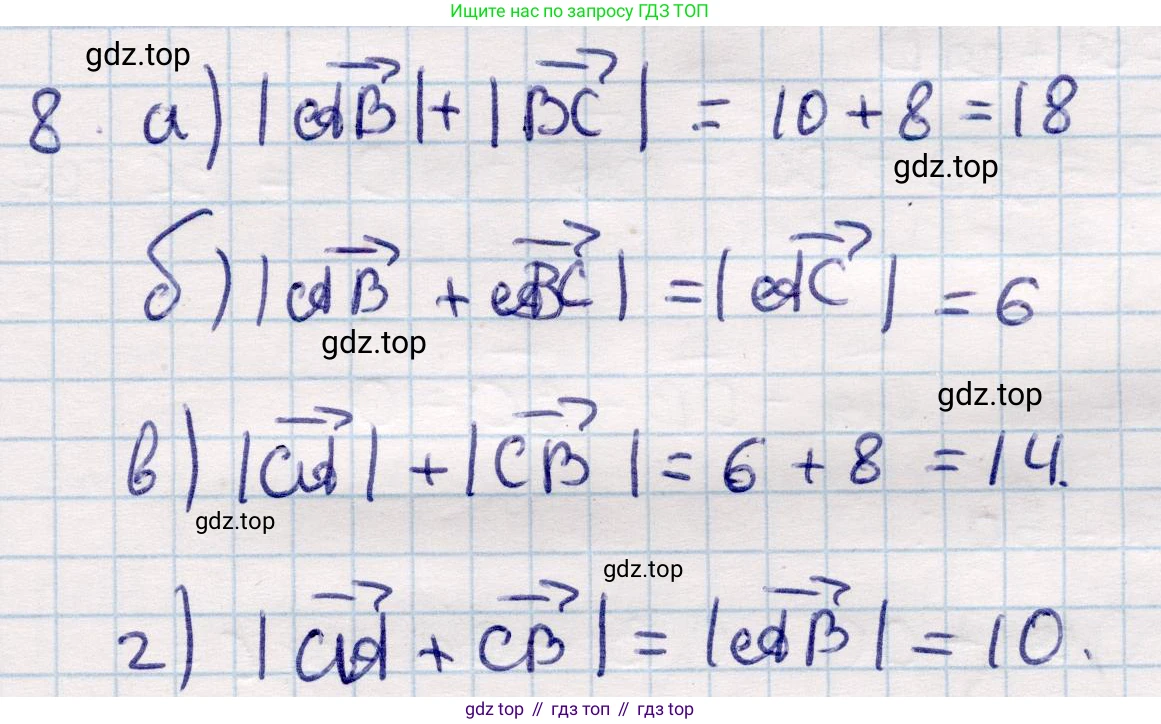 Ищите нас по запросу ГДЗ ТОП
gdz.top
8. а) |AB| + |BC| = 10 + 8 = 18
gdz.top
б) |AB + BC| = |AC| = 6
gdz.top
gdz.top
в) |CA| + |CB| = 6 + 8 = 14.
gdz.top
gdz.top
г) |CA + CB| = |AB| = 10.
gdz top // гдз топ // гдз top